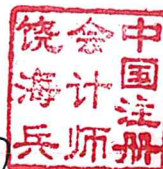 中国注册
会计师
饶海兵